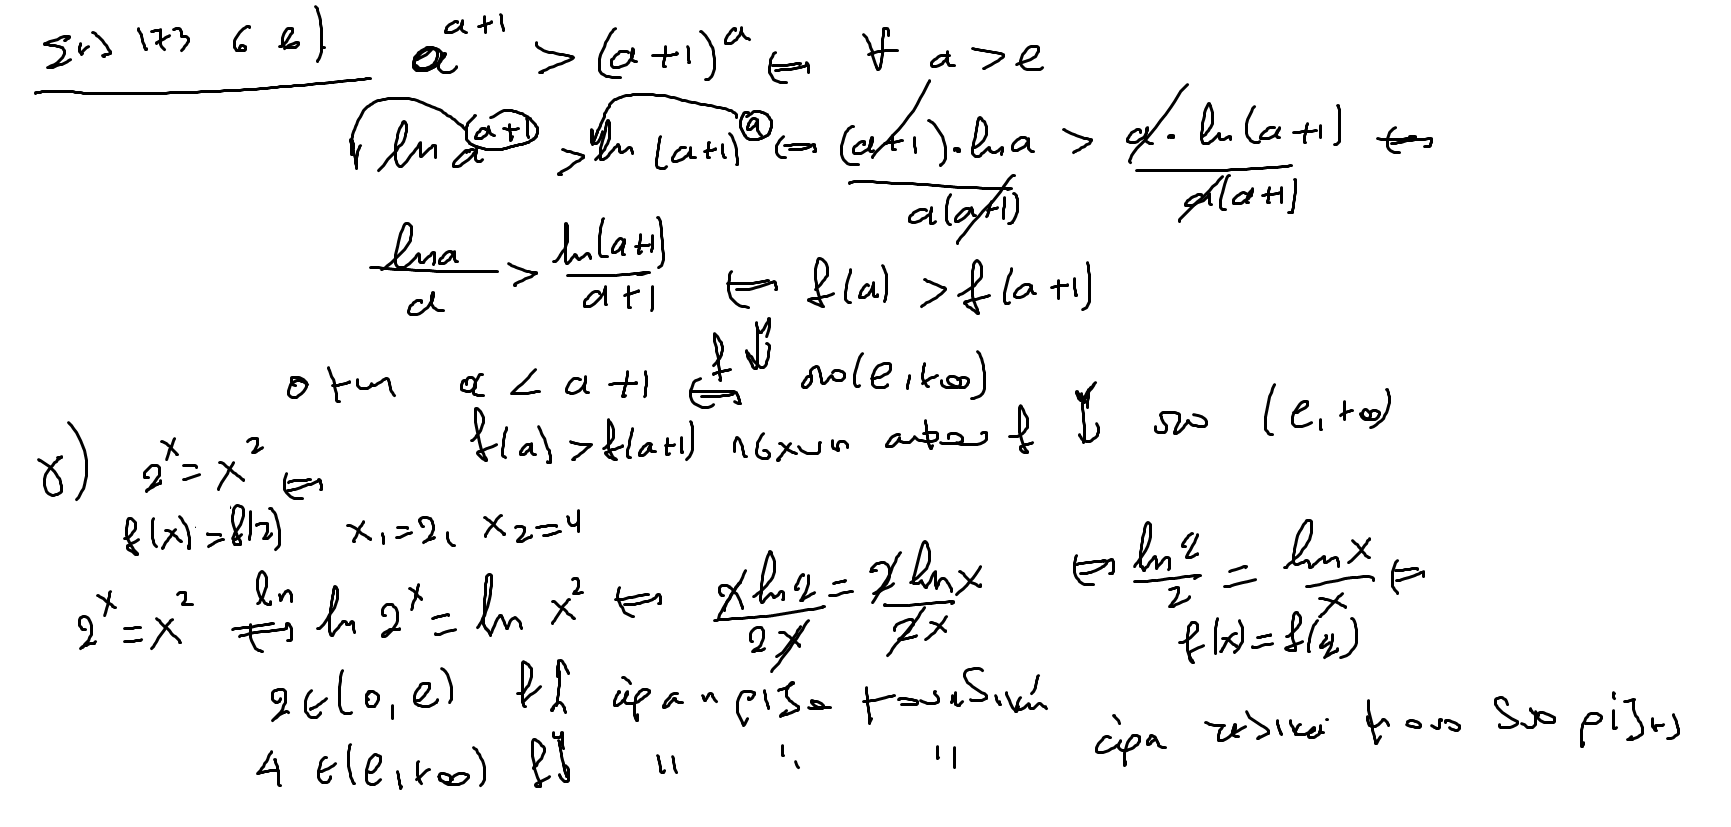 Σελ 173 6 β) a^{a+1} > (a+1)^a ⟺ ∀ a>e
ln a^{(a+1)} > ln (a+1)^a ⟺ (a+1)·ln a / a(a+1) > a·ln(a+1) / a(a+1) ⟺
ln a / a > ln(a+1) / a+1 ⟺ f(a) > f(a+1)
οταν a < a+1 ⟺ f ↓ στο (e,+∞)
f(a) > f(a+1) ισχυει αφου f ↓ στο (e,+∞)
γ) 2^x = x^2 ⟺
f(x) = f(2) x_1=2, x_2=4
2^x = x^2 ⟺ ln ln 2^x = ln x^2 ⟺ x ln 2 / 2x = 2 ln x / 2x ⟺ ln 2 / 2 = ln x / x ⟺
f(x) = f(2)
2 ∈ (0,e) f↑ άρα η ρίζα μοναδική
4 ∈ (e,+∞) f↓ " " " άρα τελικά μονο δυο ρίζες